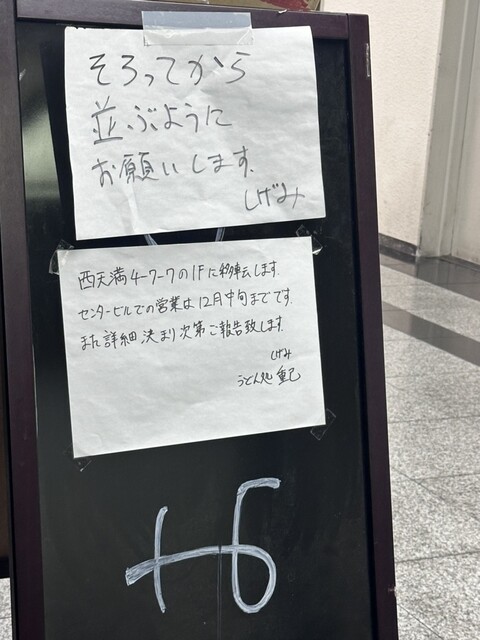 そろってから
並ぶように
お願いします。
しげみ
西天満4-7-7の1Fに移転します。
センタービルでの営業は12月中旬までです。
また詳細決まり次第ご報告致します。
しげみ
うどん処 重己